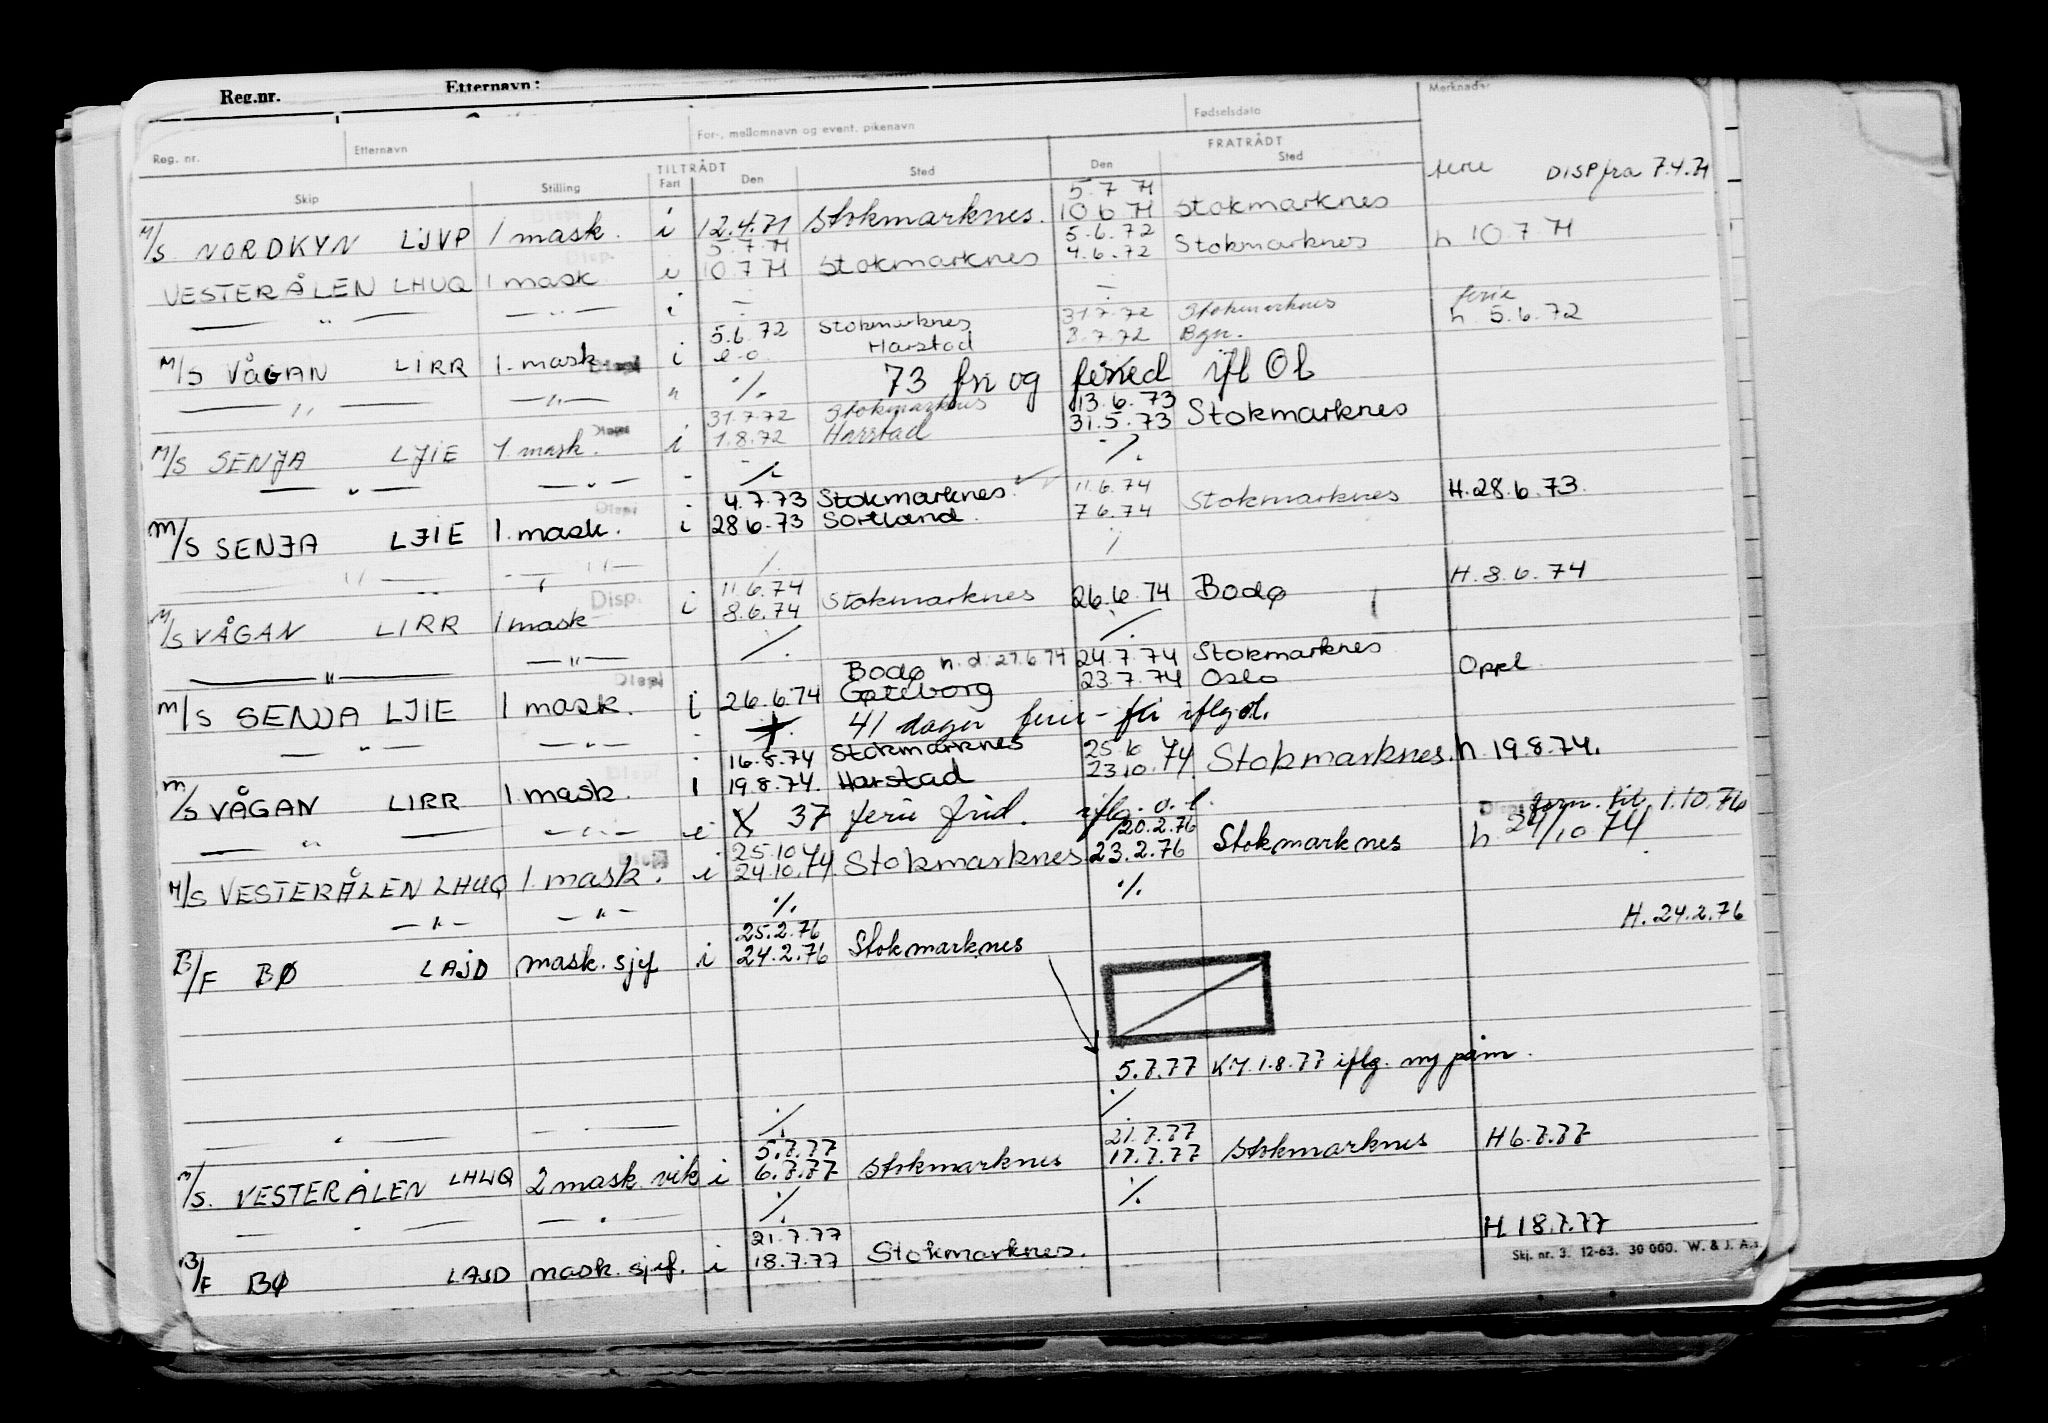 Reg.nr. Etternavn:
Merknader
For-, mellomnavn og event. pikenavn Fødselsdato
Reg. nr. Etternavn
TILTRÅDT FRATRÅDT
Skip Stilling Fart Den Sted Den Sted
ferie DISP fra 7.4.71
5.7 71
M/S NORDKYN LJVP 1 mask. i 12.4.71 Stokmarknes. 10 6 71 Stokmarknes
5.7.71 5.6.72
VESTERÅLEN LHUQ 1 mask i 10.7 71 Stokmarknes 4.6.72 Stokmarknes h 10.7 71
— " — — " — i — —
5.6.72 Stokmarknes 31.7.72 Stokmarknes ferie
M/S VÅGAN LIRR 1. mask Displ i e.o. Harstad 3.7.72 Bgn. h 5.6.72
— " — — " — " ./. 73 fri og feried ifl Ol
31.7.72 Stokmarknes 13.6.73
M/S SENJA LJIE 1 mask. Displ i 1.8.72 Harstad 31.5.73 Stokmarknes
— " — — " — - ./. ./.
4.7.73 Stokmarknes. 11.6.74
M/S SENJA LJIE 1. mask. Displ i 28 6.73 Sortland. 7 6.74 Stokmarknes H.28.6.73.
— " — — " — ./. ./
11.6.74
M/S VÅGAN LIRR 1 mask Disp. i 8.6.74 Stokmarknes 26.6.74 Bodø H.8.6.74
— " — — " — ./. ./.
Bodø h.d. 27.6.74 24.7.74 Stokmarknes
M/S SENJA LJIE 1 mask. Displ i 26.6.74 Gøteborg 23.7.74 Oslo Oppl
— " — — " — 41 dager ferie - fri iflg ol.
16.8.74 Stokmarknes 25.10
M/S VÅGAN LIRR 1. mask. Displ i 19.8.74. Harstad 23.10.74 Stokmarknes. h. 19.8.74.
— " — — " — i 37 ferie frid. iflg. o.l. forn. til 1.10.76
25.10 74 20.2.76
M/S VESTERÅLEN LHUQ 1. mask. i 24.10.74 Stokmarknes 23.2.76 Stokmarknes h 24/10 74
— " — — " — ./. ./.
25.2.76 H. 24.2.76
B/F BØ LAJD mask. sjef i 24.2.76 Stokmarknes
5.7.77 K7 1.8.77 iflg. ny påm.
— " — — . — ./. ./.
5.7.77 21.7.77
M/S. VESTERÅLEN LHUQ 2 mask. vik i 6.7.77 Stokmarknes 17.7.77 Stokmarknes H 6.7.77
— " — — " — ./. ./.
21.7.77 H. 18.7.77
B/F BØ LAJD mask. sjef. i 18.7.77 Stokmarknes.
Skj. nr. 3. 12-63. 30 000. W. & J. A.s.